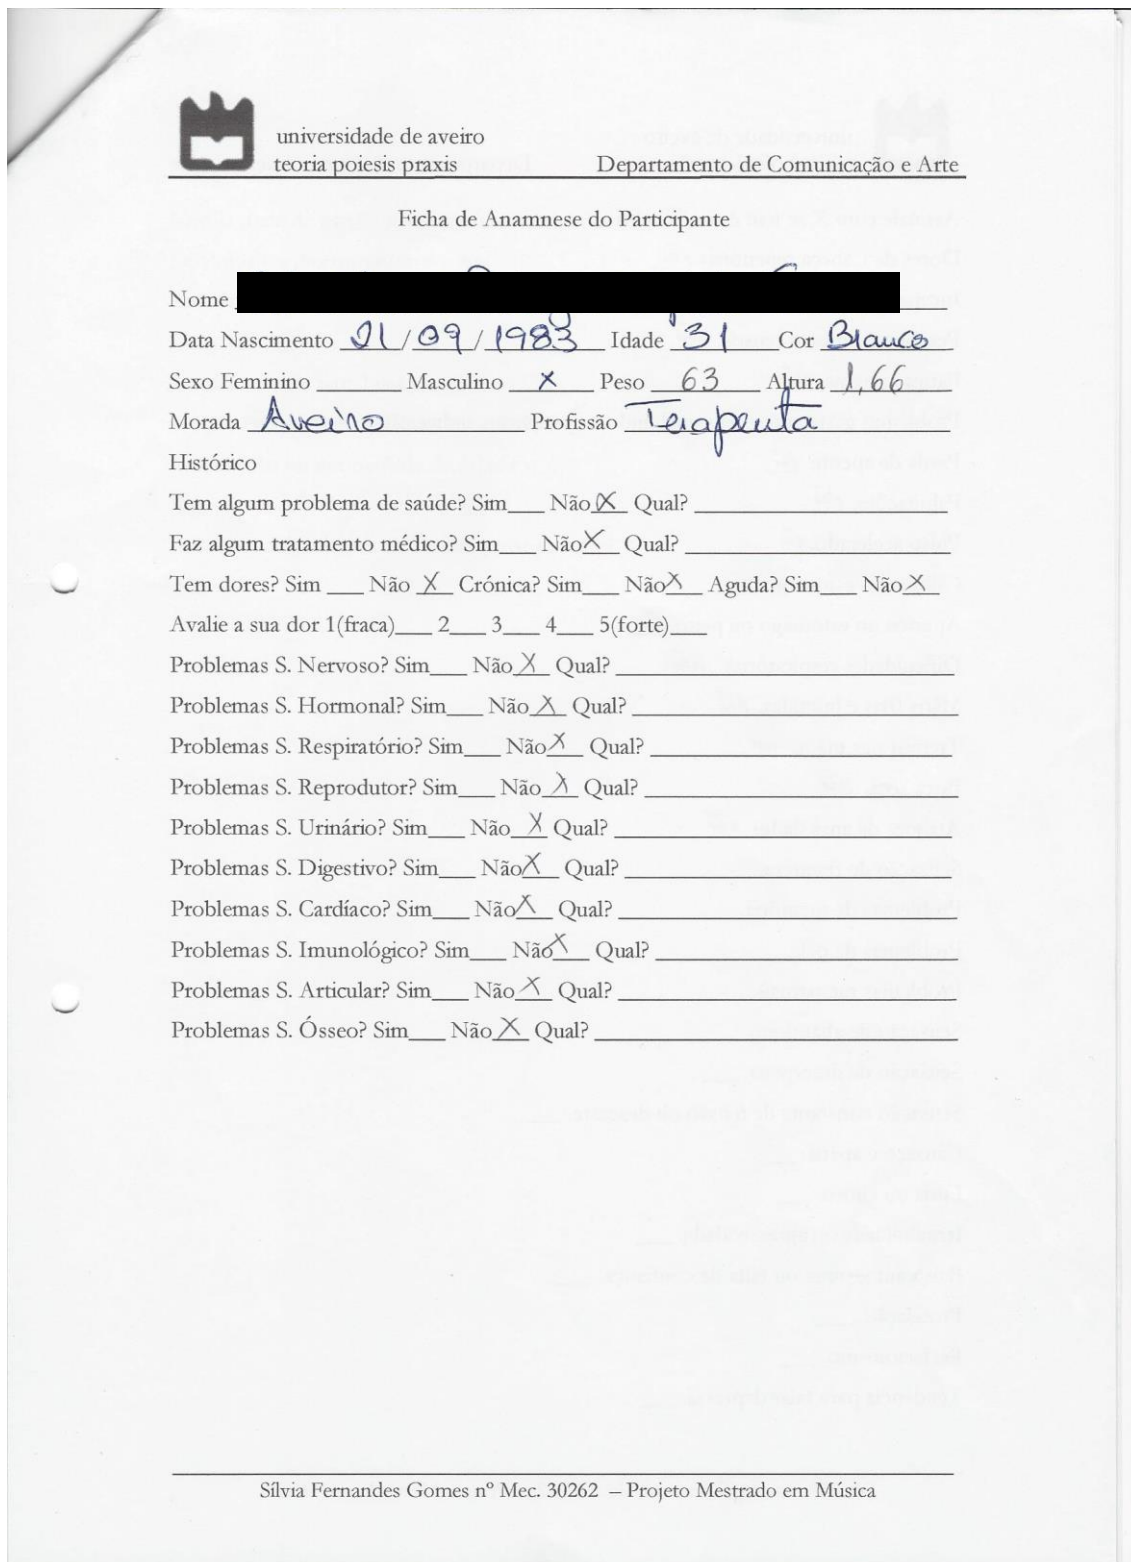 universidade de aveiro
teoria poiesis praxis Departamento de Comunicação e Arte
Ficha de Anamnese do Participante
Nome
Data Nascimento 21/09/1983 Idade 31 Cor Branco
Sexo Feminino ______ Masculino X Peso 63 Altura 1,66
Morada Aveiro Profissão Terapeuta
Histórico
Tem algum problema de saúde? Sim___ Não X Qual? ______
Faz algum tratamento médico? Sim___ Não X Qual? ______
Tem dores? Sim ___ Não X Crónica? Sim___ Não X Aguda? Sim___ Não X
Avalie a sua dor 1(fraca)___ 2___ 3___ 4___ 5(forte)___
Problemas S. Nervoso? Sim___ Não X Qual? ______
Problemas S. Hormonal? Sim___ Não X Qual? ______
Problemas S. Respiratório? Sim___ Não X Qual? ______
Problemas S. Reprodutor? Sim___ Não X Qual? ______
Problemas S. Urinário? Sim___ Não X Qual? ______
Problemas S. Digestivo? Sim___ Não X Qual? ______
Problemas S. Cardíaco? Sim___ Não X Qual? ______
Problemas S. Imunológico? Sim___ Não X Qual? ______
Problemas S. Articular? Sim___ Não X Qual? ______
Problemas S. Ósseo? Sim___ Não X Qual? ______
Sílvia Fernandes Gomes nº Mec. 30262 – Projeto Mestrado em Música